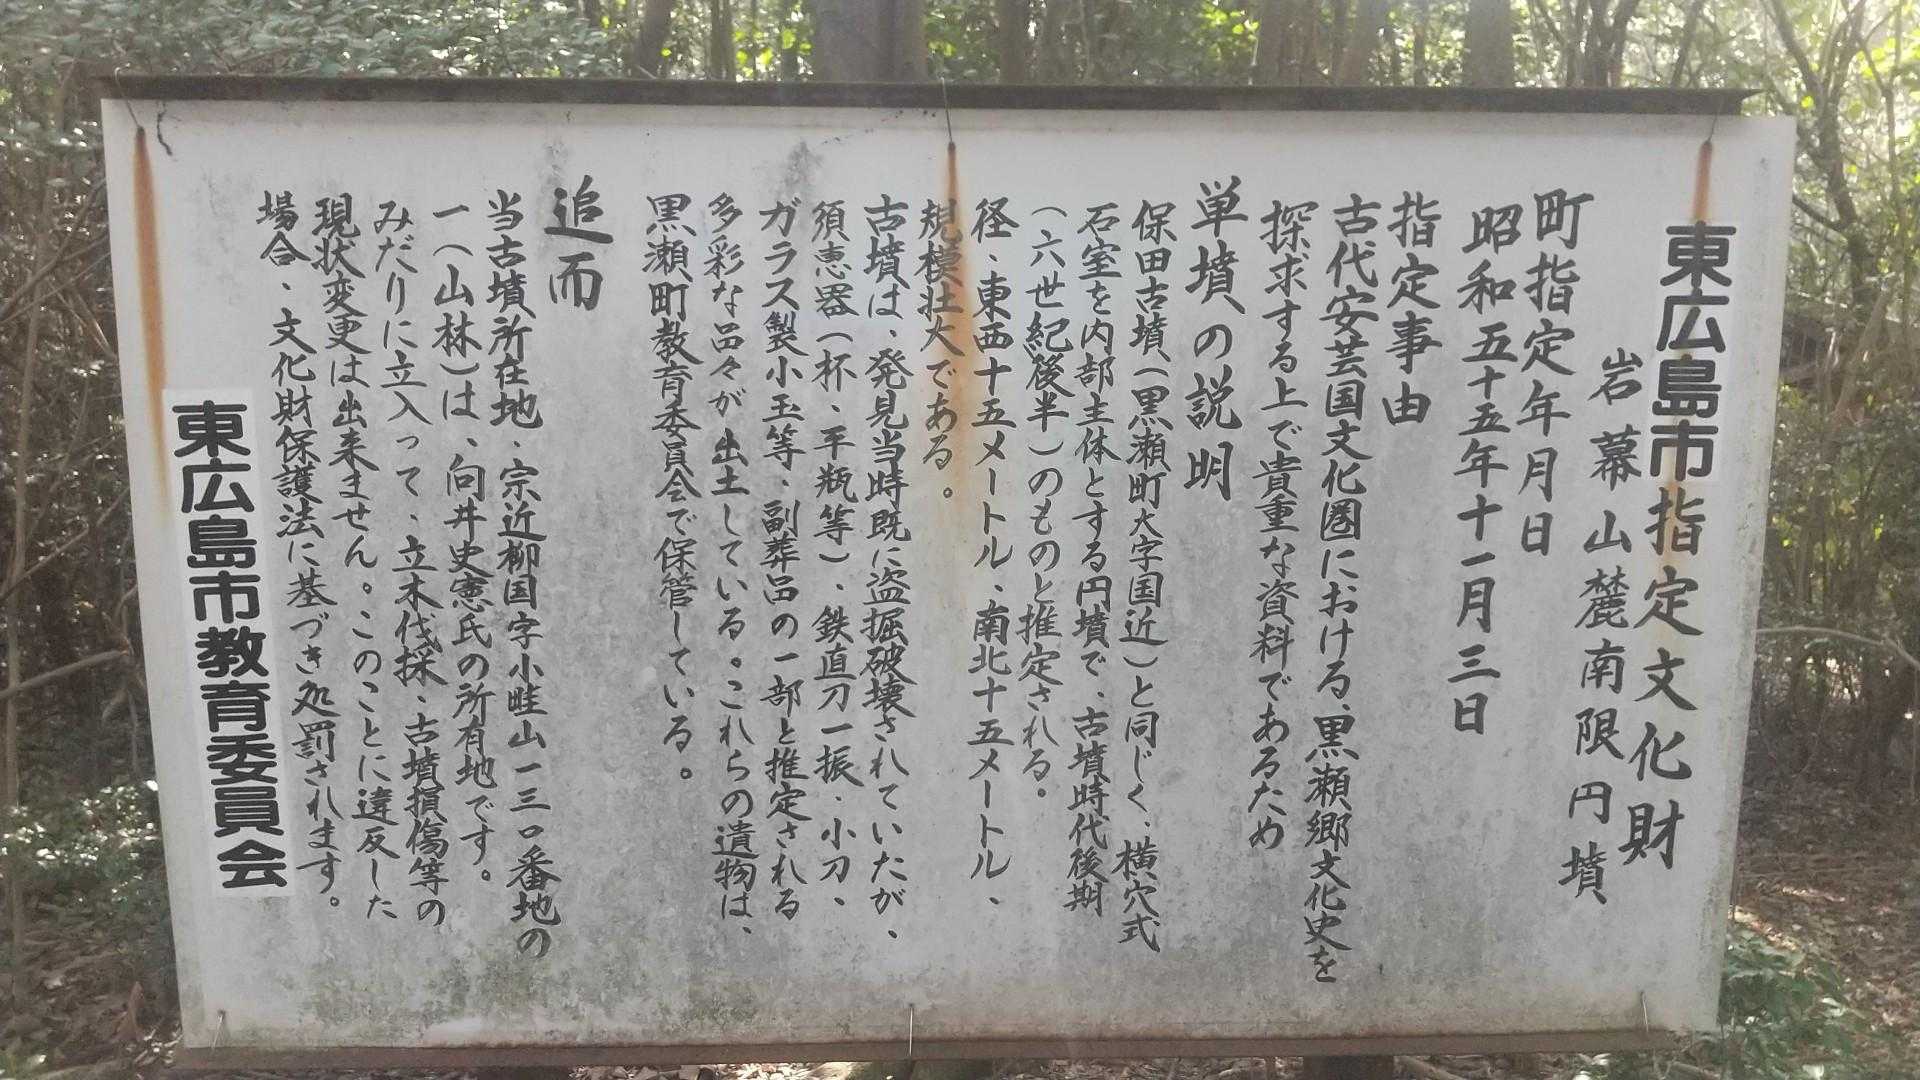 東広島市指定文化財
岩幕山麓南限円墳
町指定年月日
昭和五十五年十一月三日
指定事由
古代安芸国文化圏における、黒瀬郷文化史を
探求する上で貴重な資料であるため
単墳の説明
保田古墳(黒瀬町大字国近)と同じく、横穴式
石室を内部主体とする円墳で、古墳時代後期
(六世紀後半)のものと推定される。
径、東西十五メートル、南北十五メートル、
規模壮大である。
古墳は、発見当時既に盗掘破壊されていたが、
須恵器(杯、平瓶等)、鉄直刀一振、小刀、
ガラス製小玉等、副葬品の一部と推定される
多彩な品々が出土している。これらの遺物は、
黒瀬町教育委員会で保管している。
追而
当古墳所在地、宗近柳国字小畦山一三〇番地の
一(山林)は、向井史憲氏の所有地です。
みだりに立入って、立木伐採、古墳損傷等の
現状変更は出来ません。このことに違反した
場合、文化財保護法に基づき処罰されます。
東広島市教育委員会